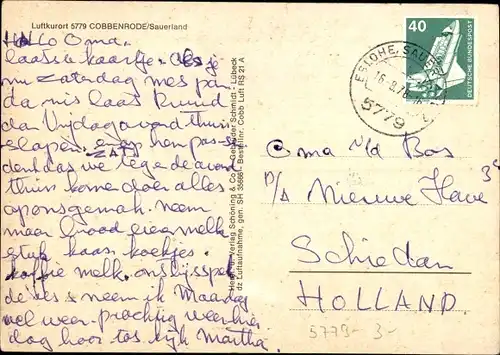 Luftkurort 5779 COBBENRODE/Sauerland
Hallo Oma.
laatste kaartje. als je
nu zaterdag mes
da mis laat Ruud
dan Vrijdagavond thuis
slapen, en op hen pas
denk dat we tegen de avond
ZAT.
thuis komen doe alles
op ons gemak. neem
maar brood eieren melk
stuk kaas koekjes.
koffie melk. ons ijsspel
de is & neem ik Maandag
wel weer. prachtig weer hier
dag hoor tos tijk Martha.
Verlag Schöning & Co + Gebrüder Schmidt - Lübeck
dz Luftaufnahme, gen. SH 35665 Bestellnr. Cobb Luft RS 21 A
40
DEUTSCHE BUNDESPOST
ESLOHE, SAUERL
5779
Oma v/d Bos
p/a Nieuwe Have 34
Schiedam
HOLLAND
5779-3-